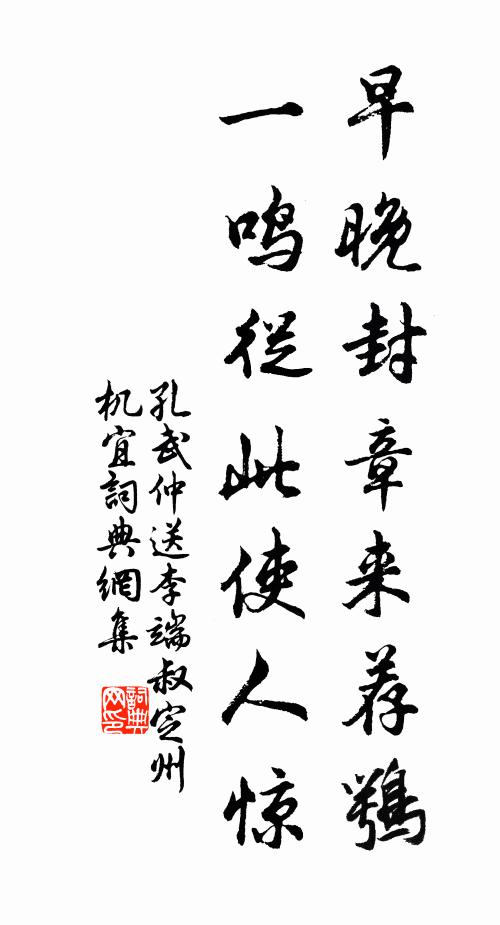 早晚封章来荐鹗
一鸣從此使人惊
孔武仲送李端叔定州
机宜詞典網集
詞典
网印